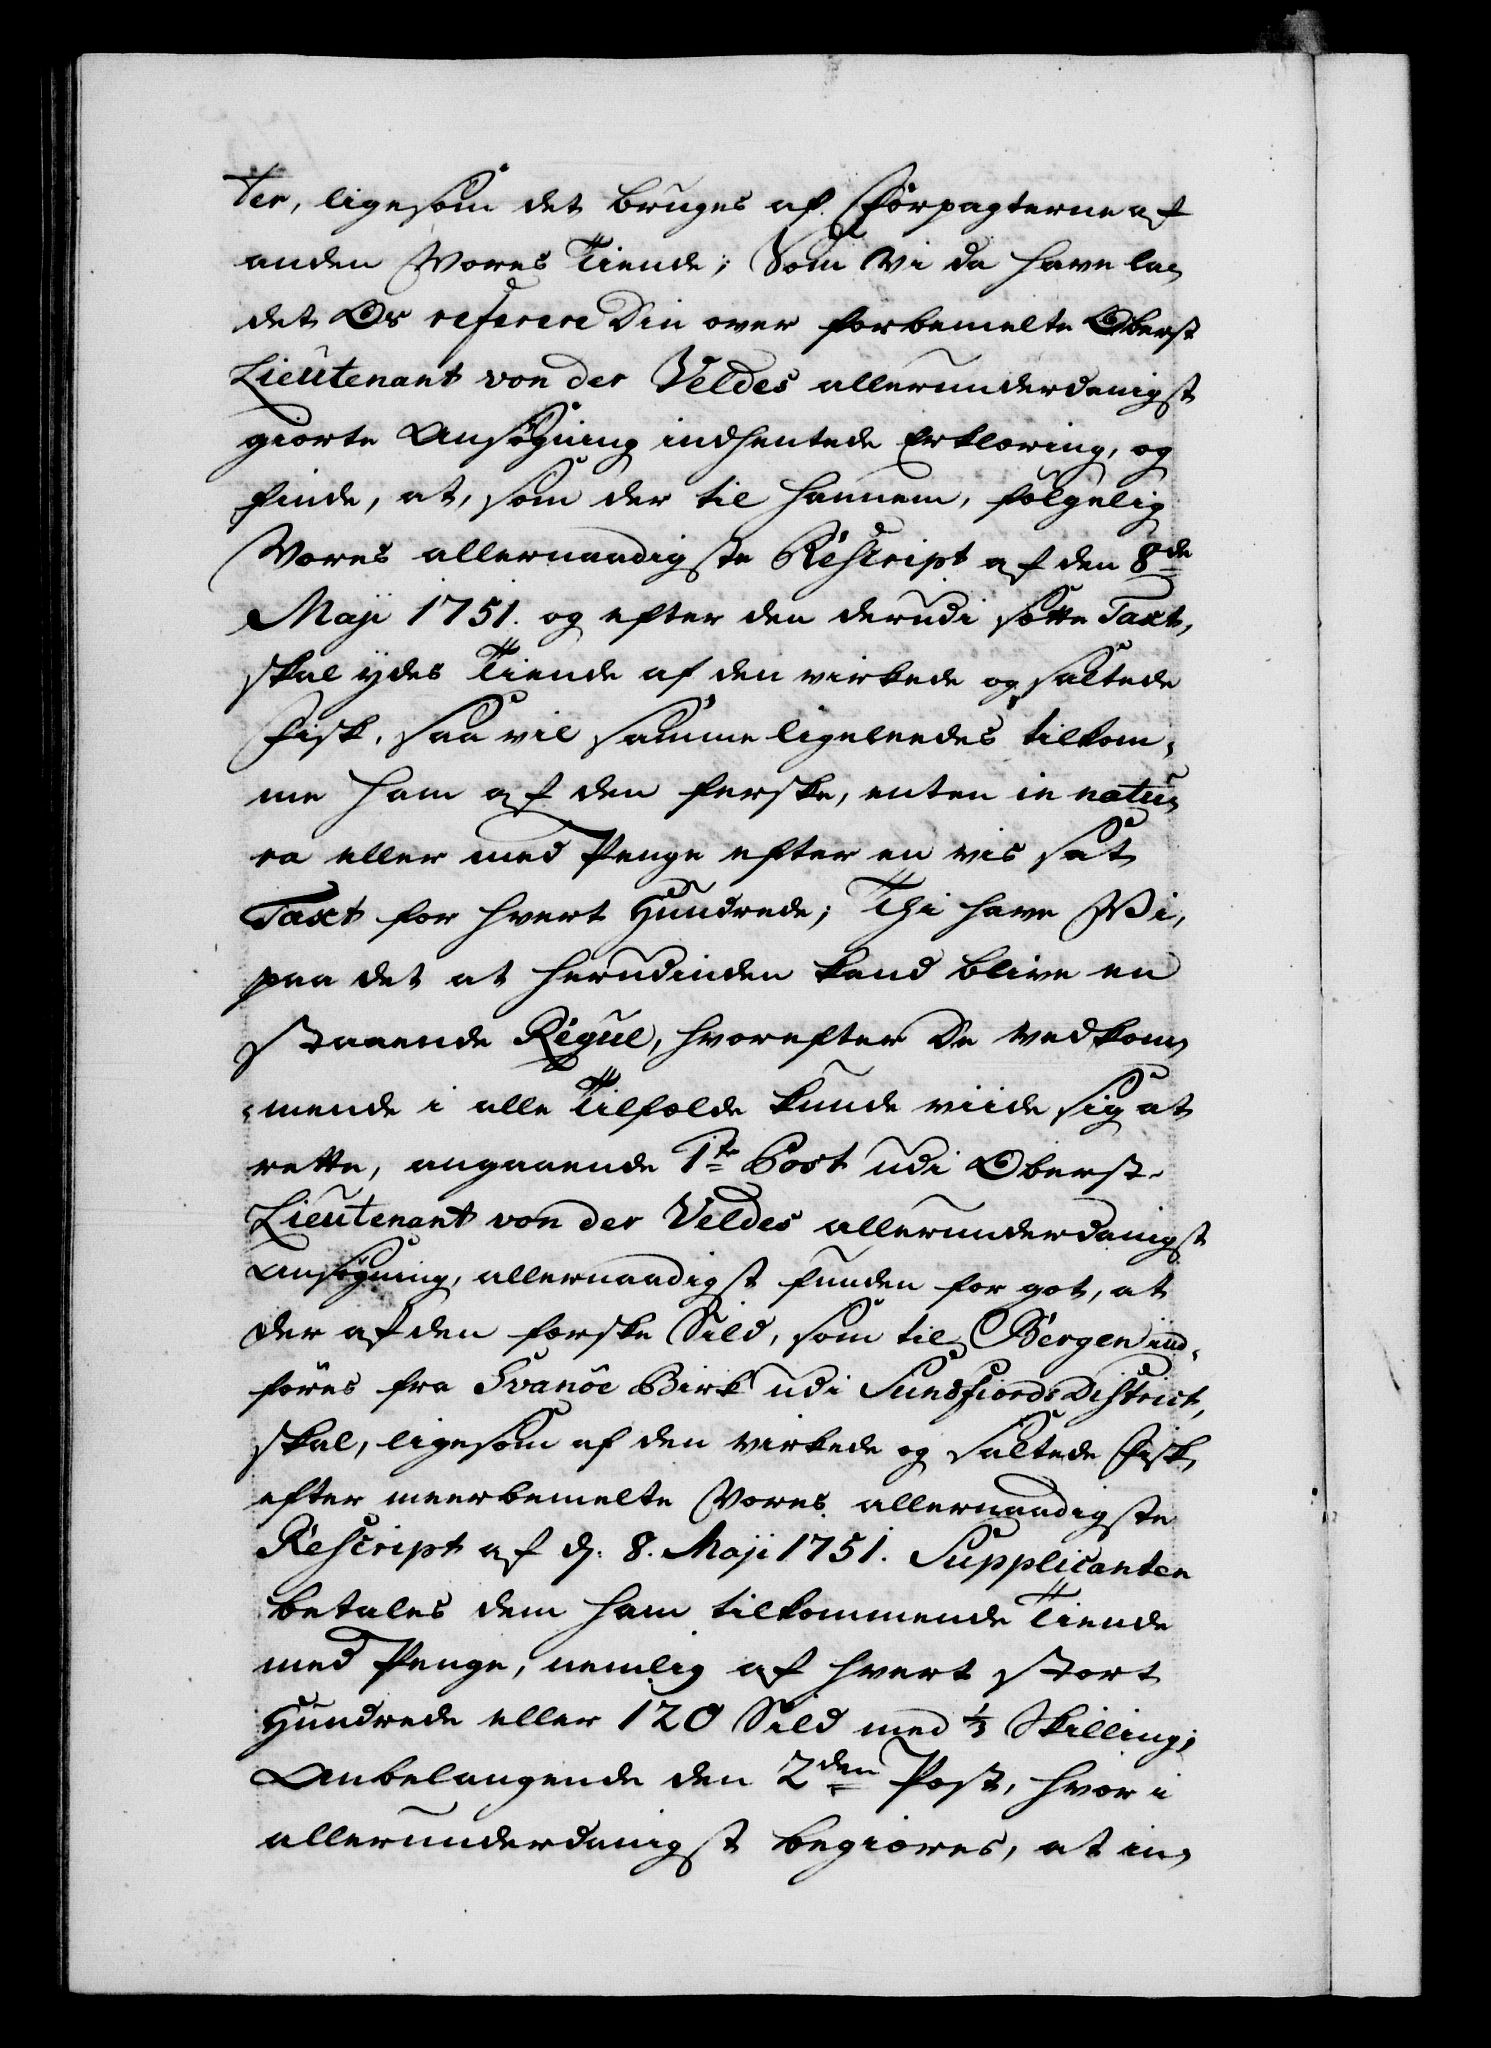 ter, ligesom det bruges af Forpagterne af
anden Vores Tiende; Som Vi da have la,
det Os referere Din over forbemelte Oberst
Lieutenant von der Veldes allerunderdanigst
giorte Ansøgning indhentede Erklæring, og
finde, at, som der til hannem, følgelig
Vores allernaadigste Rescript af den 8de
Maji 1751. og efter den derudi satte Taxt,
skal ydes Tiende af den virkede og saltede
Fisk, saa vil samme ligeleedes tilkom,
me ham af den ferske, enten in natu,
ra eller med Penge efter en vis sat
Taxt for hvert Hundrede; Thi have Vi,
paa det at herudinden kand blive en
staaende Regul, hvorefter De vedkom,
mende i alle Tilfælde kunde viide sig at
rette, angaaende 1te Post udi Oberst-
Lieutenant von der Veldes allerunderdanigst
Ansøgning, allernaadigst funden for got, at
der af den ferske Sild, som til Bergen ind,
føres fra Svanöe Birk udi Sundfiords District,
skal, ligesom af den virkede og saltede Fisk,
efter meerbemelte Vores allernaadigste
Rescript af d: 8. Maji 1751. Supplicanten
betales dem ham tilkommende Tiende
med Penge, nemlig af hvert stort
Hundrede eller 120 Sild med 1/3 Skilling;
Anbelangende den 2den Post, hvor i
allerunderdanigst begiæres, at in,